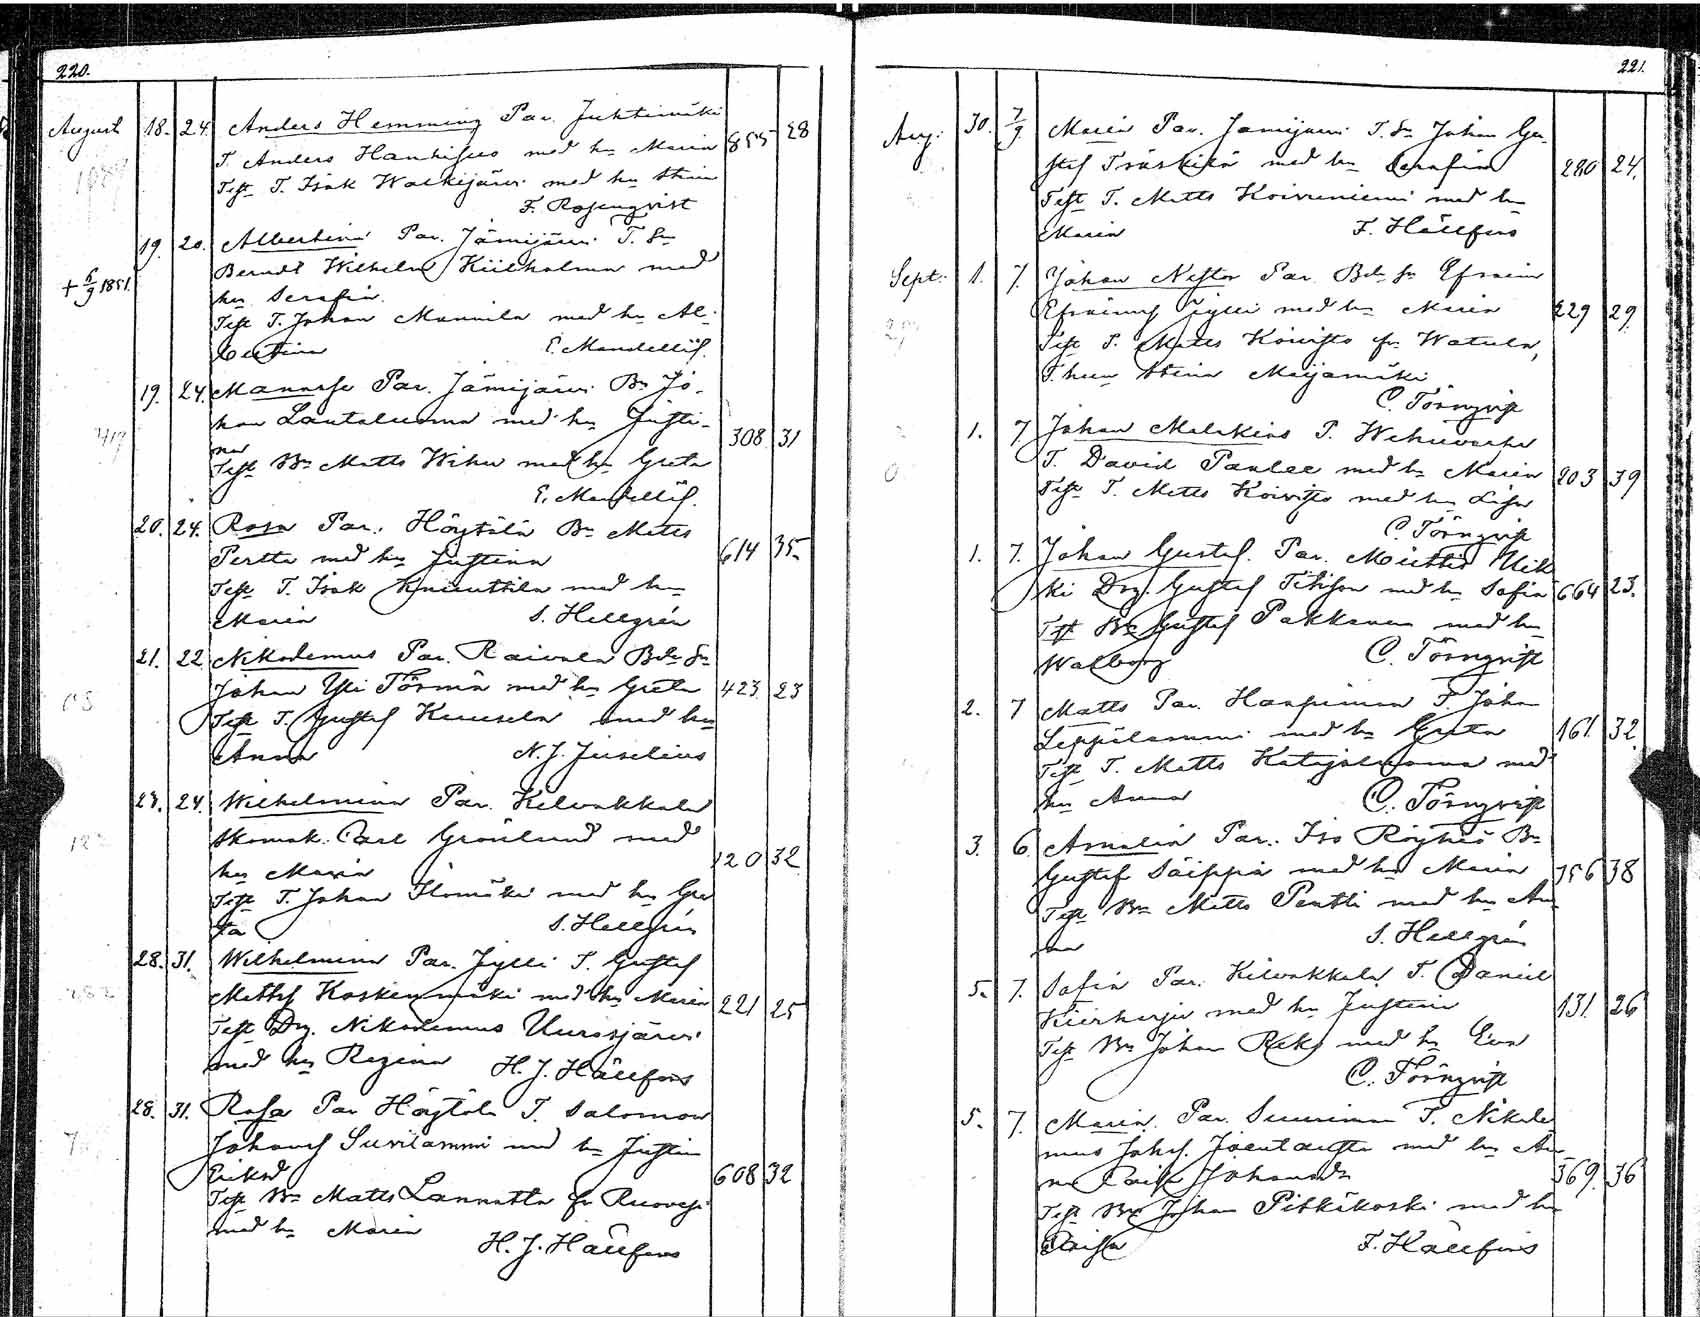 220.
August 18. 24. Anders Hemming Par. Juhtimäki
T. Anders Hanhijus med h. Maria 855 28
Test. T. Isak Walkijärvi med h. Stina
F. Rosenqvist
19. 20. Albertina Par. Jämijärvi T. Sn
Berndt Wilhelm Kiilholma med
+ 6/9 1851. h. Serafia.
Test. T. Johan Mannila med h. Al-
bertina E. Mandellöf.
19. 24. Manasse Par. Jämijärvi Bn Jo-
han Lautaluoma med h. Justi-
na 308 31
Test. Bn Matts Wihu med h. Greta
E. Mandellöf.
20. 24. Rosa Par. Höytölä Bn Matts
Pertta med h. Justina 614 35.
Test. T. Isak Knuuttila med h.
Maria S. Hellgrén
21. 22. Nikodemus Par. Raivala Bde Sn
Johan Yli Törmä med h. Greta 423 23
Test. T. Gustaf Kuusela med h.
Anna N. J. Juselius
23. 24. Wilhelmina Par. Kilvakkala
Skomak. Carl Grönlund med
h. Maria 120 32
Test. T. Johan Ilomäki med h. Gre
ta S. Hellgrén
28. 31. Wilhelmina Par. Jylli T. Gustaf
Mattsf Koskenmäki med h. Maria 221 25
Test. Drg. Nikodemus Uurasjärvi
med h. Regina H. J. Hällfors
28. 31. Rosa Par Höytölä T. Salomon
Johansf Surilammi med h. Justina
Eriksd 608 32
Test. Bn Matts Lannatta fr Ruovesi
med h. Maria
H. J. Hällfors
221.
Aug. 30. 7/9 Maria Par. Jämijärvi T. Sn Johan Gu-
staf Träskilä med h. Serafia 280 24.
Test. T. Matts Koivuniemi med h.
Maria F. Hällfors
Sept. 1. 7. Johan Nestor Par. Bde Sn Efraim
Efraimsf Jylli med h. Maria 229 29.
Test. T. Matts Koivisto fr. Watula,
T. hu Stina Meijamäki
C. Törnqvist
1. 7 Johan Malakias P. Wehuvarpe
T. David Paulee med h. Maria 203 39
Test. T. Matts Koivisto med h. Lisa
C. Törnqvist
1. 7. Johan Gustaf. Par. Miettis Uik
ki Drg. Gustaf Tikson med h. Sofia 664 23.
Test Bn Gustaf Pakkanen med h.
Walborg C. Törnqvist
2. 7 Matts Par. Hanpimen T. Johan
Leppälammi med h. Greta 161. 32.
Test. T. Matts Katajaluoma med
h. Anna C. Törnqvist
3. 6. Amalia Par. Iso Röyhiö Bn
Gustaf Säippä med h. Maria 756 38
Test. Bn Matts Pentti med h. An-
na S. Hellgrén
5. 7. Sofia Par. Kilvakkala T. Daniel
Kierikirju med h. Justina 131. 26
Test. Bn Johan Reko med h. Eva
C. Törnqvist
5. 7. Maria. Par. Suurimaa T. Nikode
mus Johsf. Joentausta med h. An-
na Caisa Johansdr 369. 36
Test. Bn Johan Pitkäkoski med h.
Caisa F. Hällfors